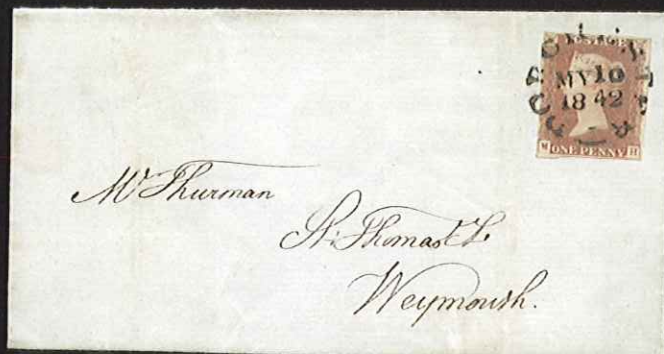 POSTAGE
MY 10
1842
M ONE PENNY H
Mr Thurman
St. Thomas St
Weymouth.